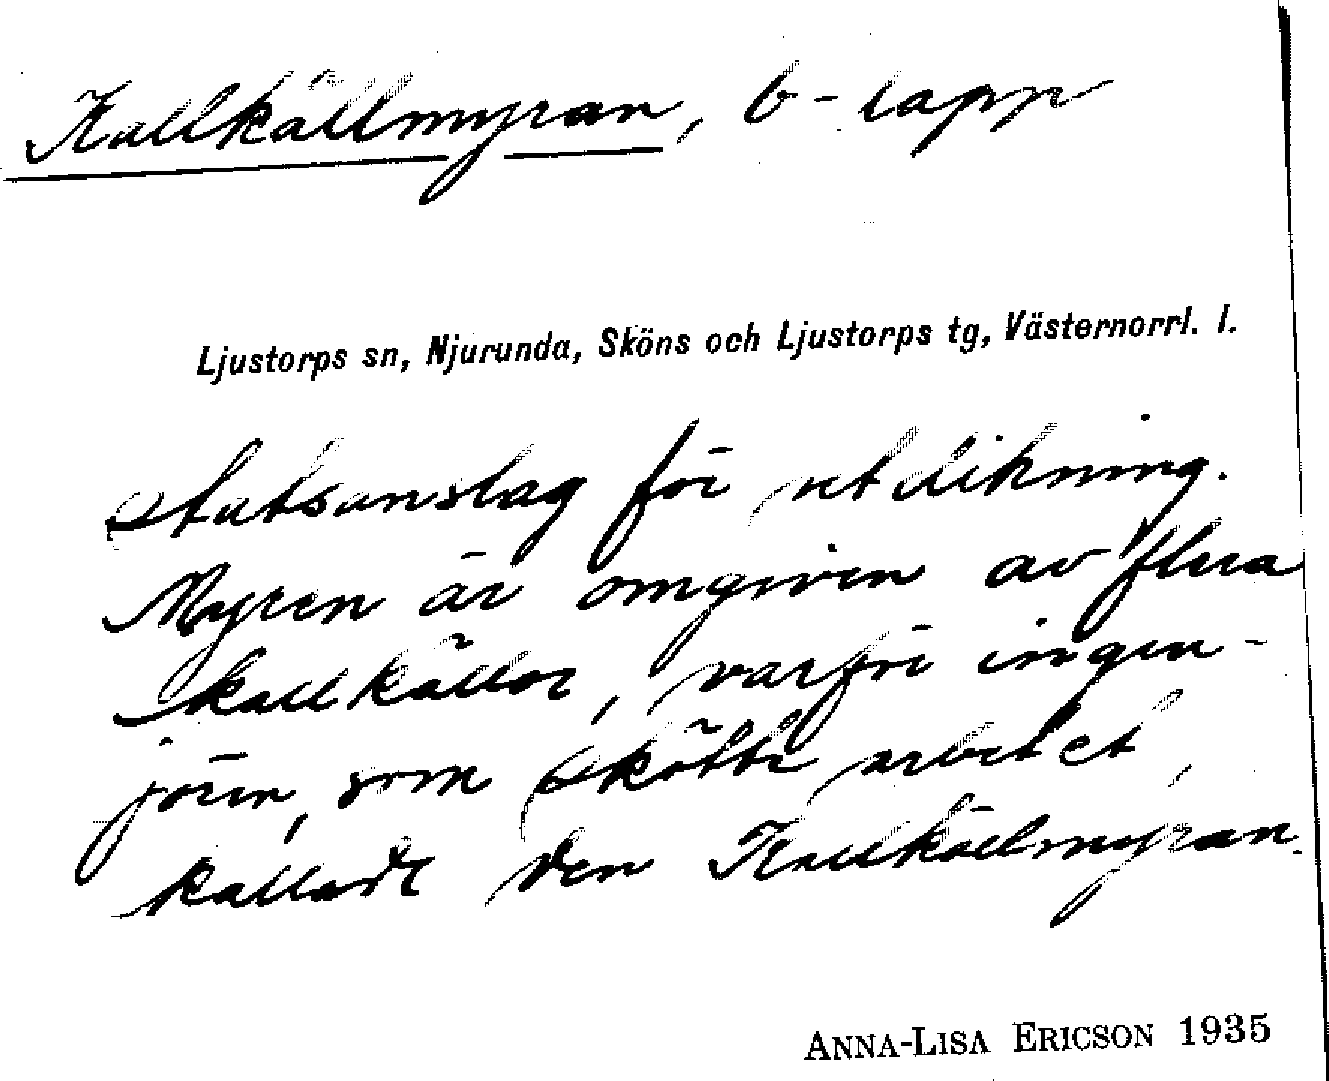 Kallkällmyran, b-lapp
Ljustorps sn, Njurunda, Sköns och Ljustorps tg, Västernorrl. l.
statsanslag för utdikning.
Myren är omgiven av flera
kallkällor, varför ingen-
jören, som skötte arbetet,
kallade den Kallkällmyran.
ANNA-LISA ERICSON 1935